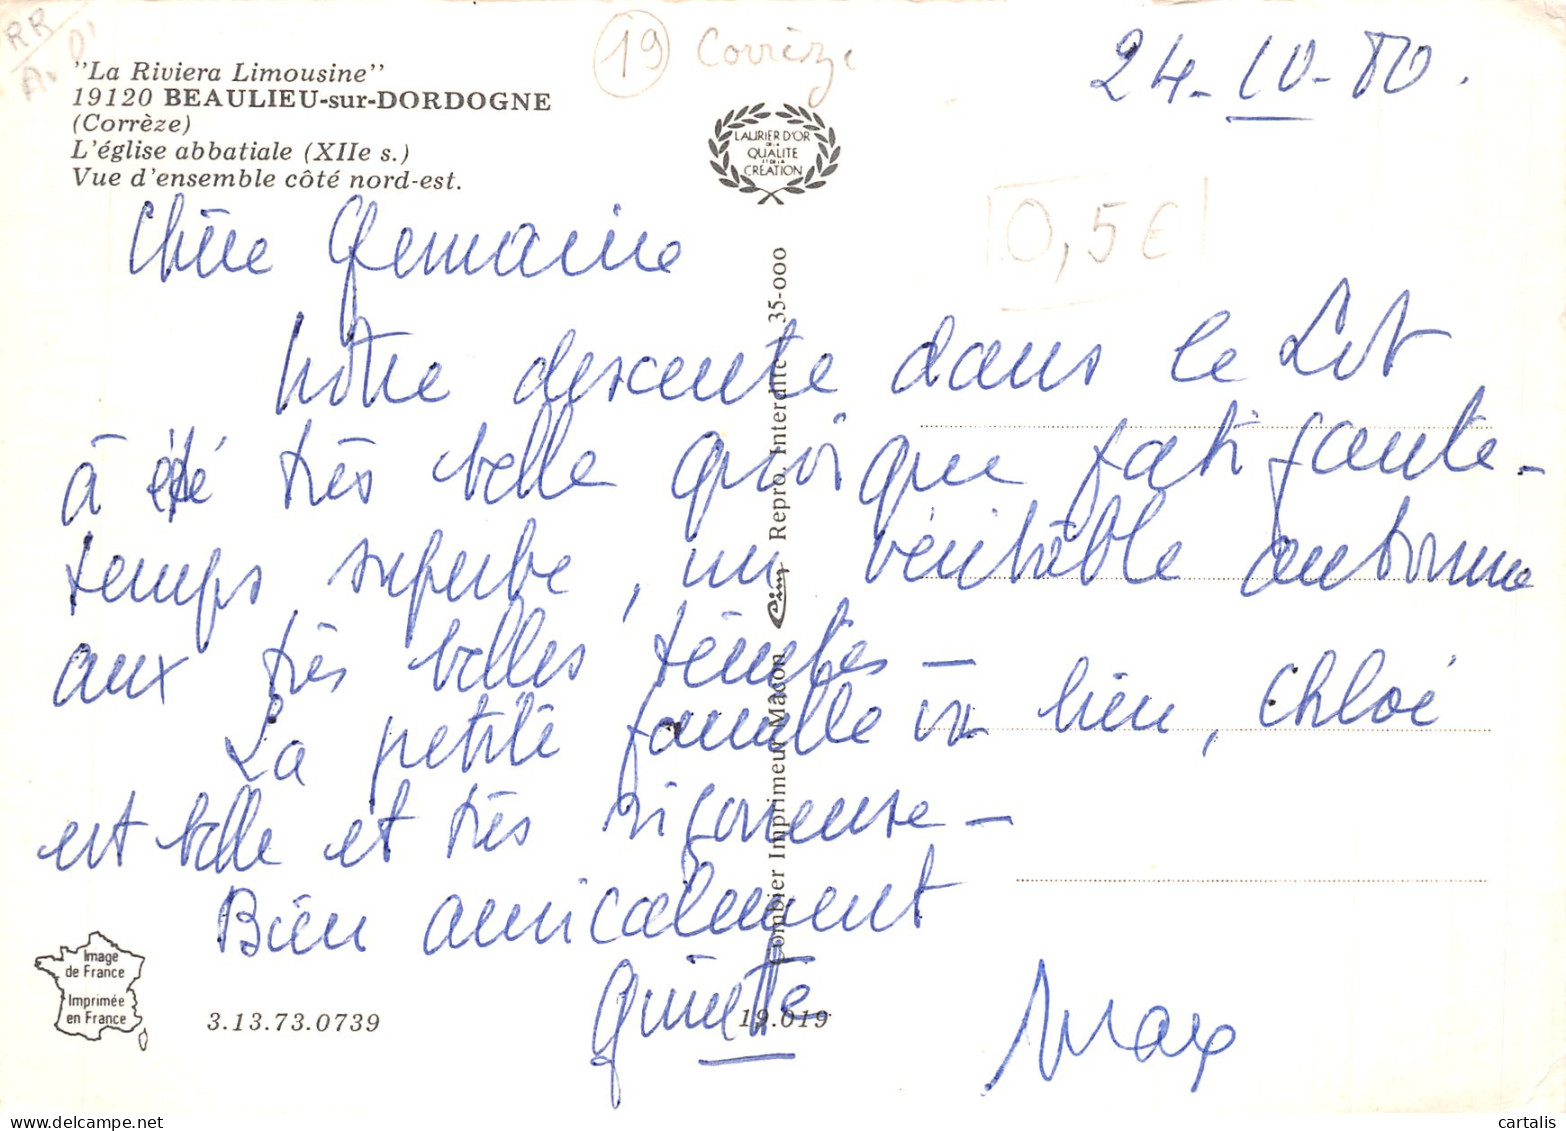 RR
A.D'
"La Riviera Limousine"
19120 BEAULIEU-sur-DORDOGNE
(Corrèze)
L'église abbatiale (XIIe s.)
Vue d'ensemble côté nord-est.
19 Corrèze
24-10-80.
LAURIER D'OR
DE LA
QUALITE
ET DE LA
CREATION
0,5€
Chère Germaine
Notre descente dans le Lot
à été très belle quoique fatigante-
temps superbe, un véritable automne
aux très belles teintes -
La petite famille va bien, Chloé
est belle et très vigoureuse -
Bien amicalement
Max
Combier Imprimeur Macon Cim Repro. Interdite 35-000
Image
de France
Imprimée
en France
3.13.73.0739
19.019
cartalis